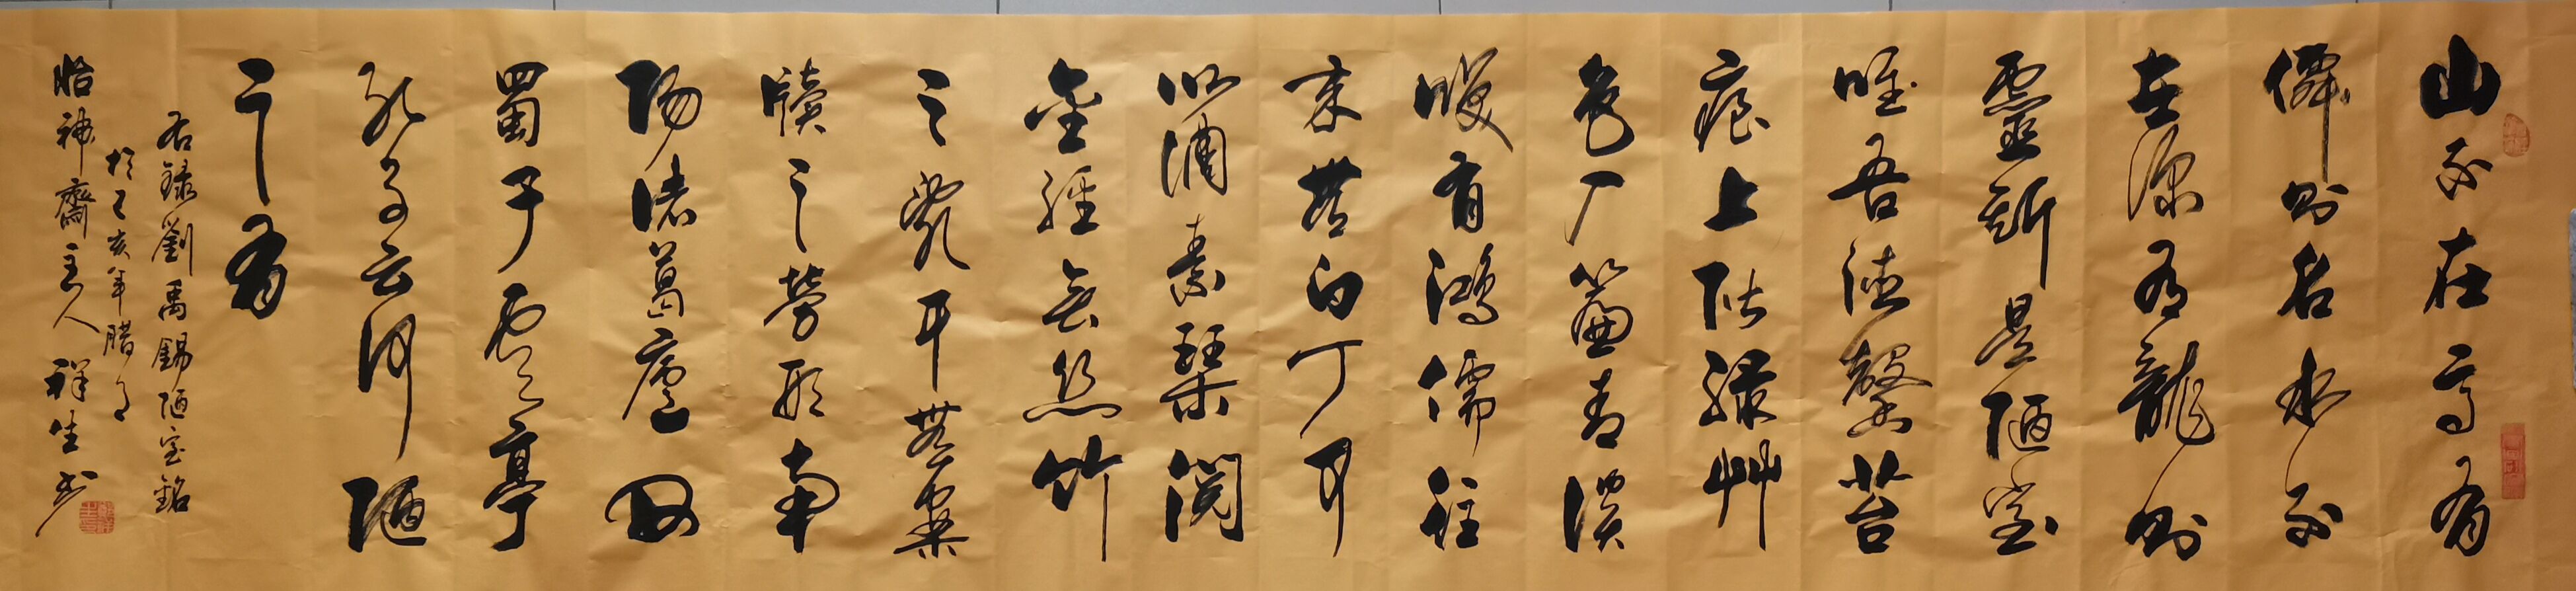 山不在高有
僊則名水不
在深有龍則
靈斯是陋室
唯吾德馨苔
痕上階綠艸
色入簾青談
咲有鴻儒往
來無白丁可
以調素琴閱
金經無絲竹
之亂耳無案
牘之勞形南
陽諸葛廬西
蜀子雲亭
孔子云何陋
之有
右錄劉禹錫陋室銘
於己亥年腊月
怡神齋主人祥生书